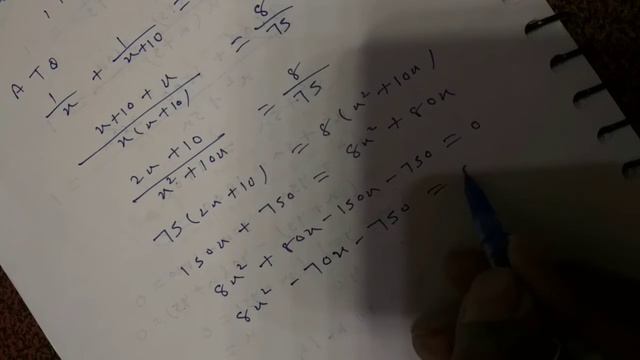 A T Q
1/x + 1/(x+10) = 8/75
(x+10+x)/(x(x+10))
(2x+10)/(x²+10x) = 8/75
75(2x+10) = 8(x²+10x)
150x + 750 = 8x² + 80x
8x² + 80x - 150x - 750 = 0
8x² - 70x - 750 =